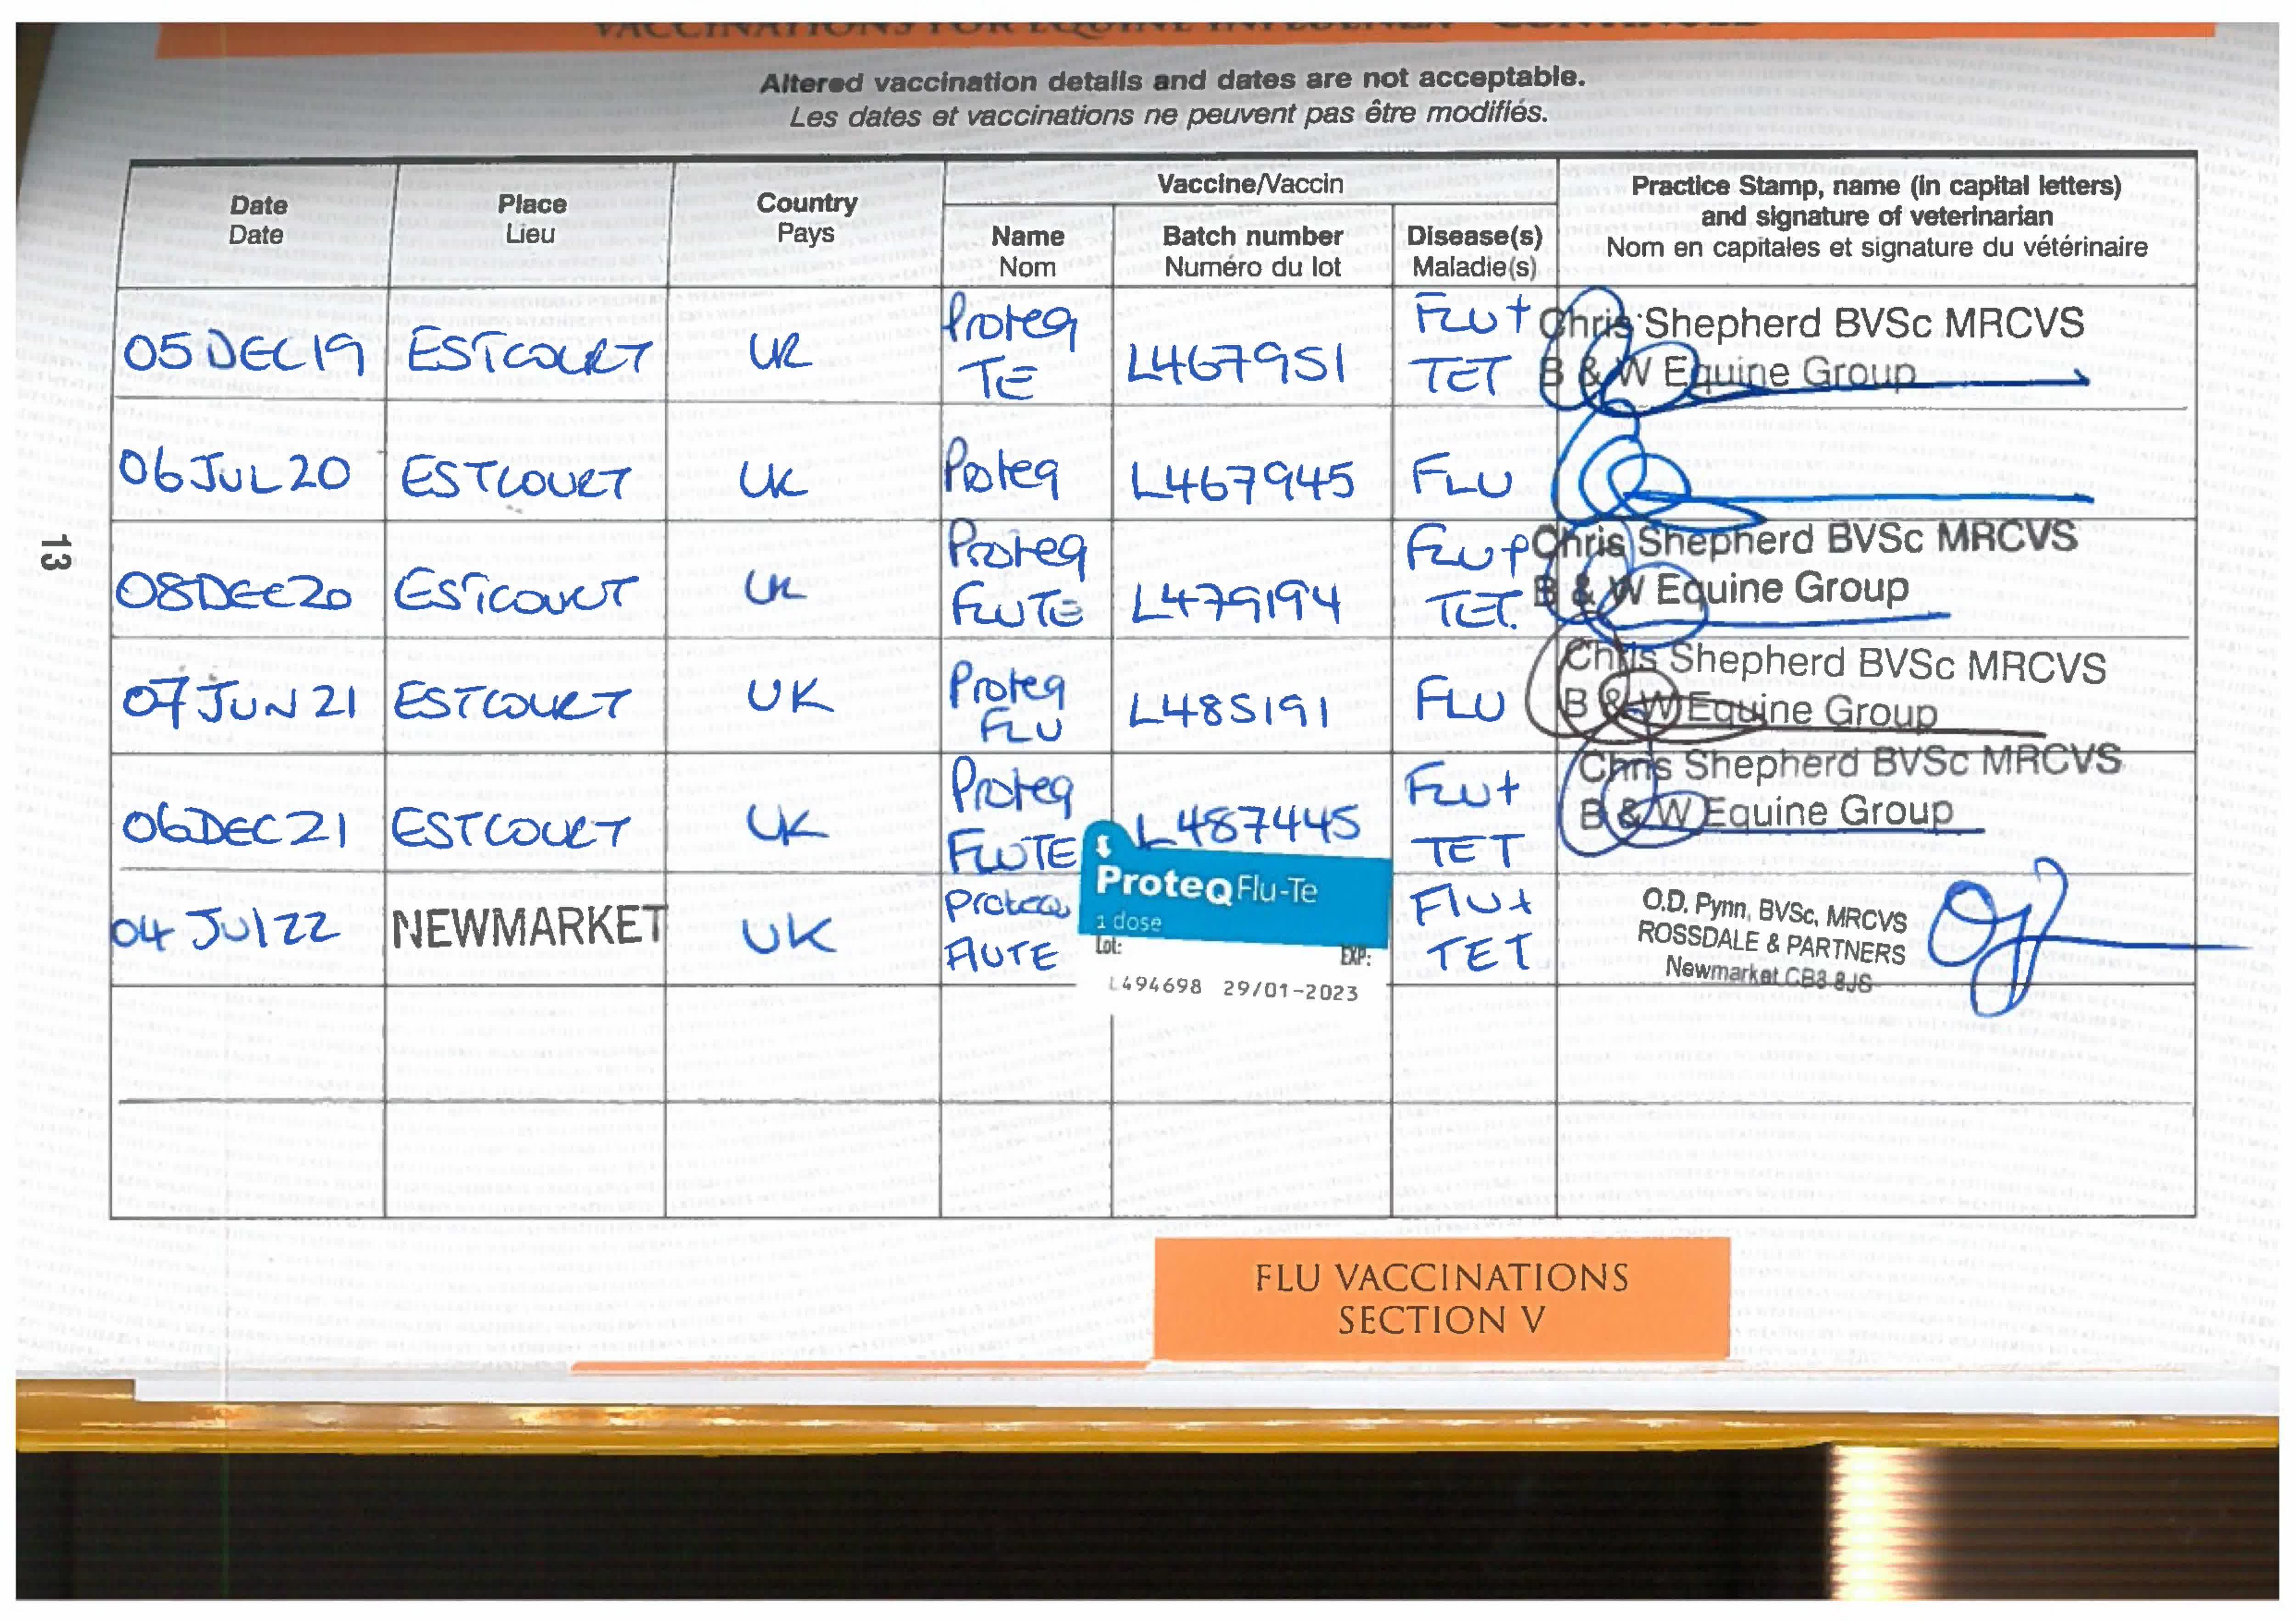 VACCINATIONS FOR EQUINE INFLUENZA - CONTINUED
Altered vaccination details and dates are not acceptable.
Les dates et vaccinations ne peuvent pas être modifiés.
Date Place Country Vaccine/Vaccin Practice Stamp, name (in capital letters)
Date Lieu Pays and signature of veterinarian
Name Batch number Disease(s) Nom en capitales et signature du vétérinaire
Nom Numéro du lot Maladie(s)
05 DEC 19 ESTCOURT UK Proteq L467951 FLU + Chris Shepherd BVSc MRCVS
TE TET B & W Equine Group
06 JUL 20 ESTCOURT UK Proteq L467945 FLU
13
08 DEC 20 ESTCOURT UK Proteq L479194 FLU Chris Shepherd BVSc MRCVS
FLUTE TET. B & W Equine Group
07 JUN 21 ESTCOURT UK Proteq L485191 FLU Chris Shepherd BVSc MRCVS
FLU B & W Equine Group
06 DEC 21 ESTCOURT UK Proteq L487445 FLU + Chris Shepherd BVSc MRCVS
FLUTE TET B & W Equine Group
04 Jul 22 NEWMARKET UK Proteq ProteqFlu-Te Flu + O.D. Pynn, BVSc, MRCVS
FLUTE 1 dose TET ROSSDALE & PARTNERS
Lot: EXP: Newmarket CB8 8JS
L494698 29/01-2023
FLU VACCINATIONS
SECTION V